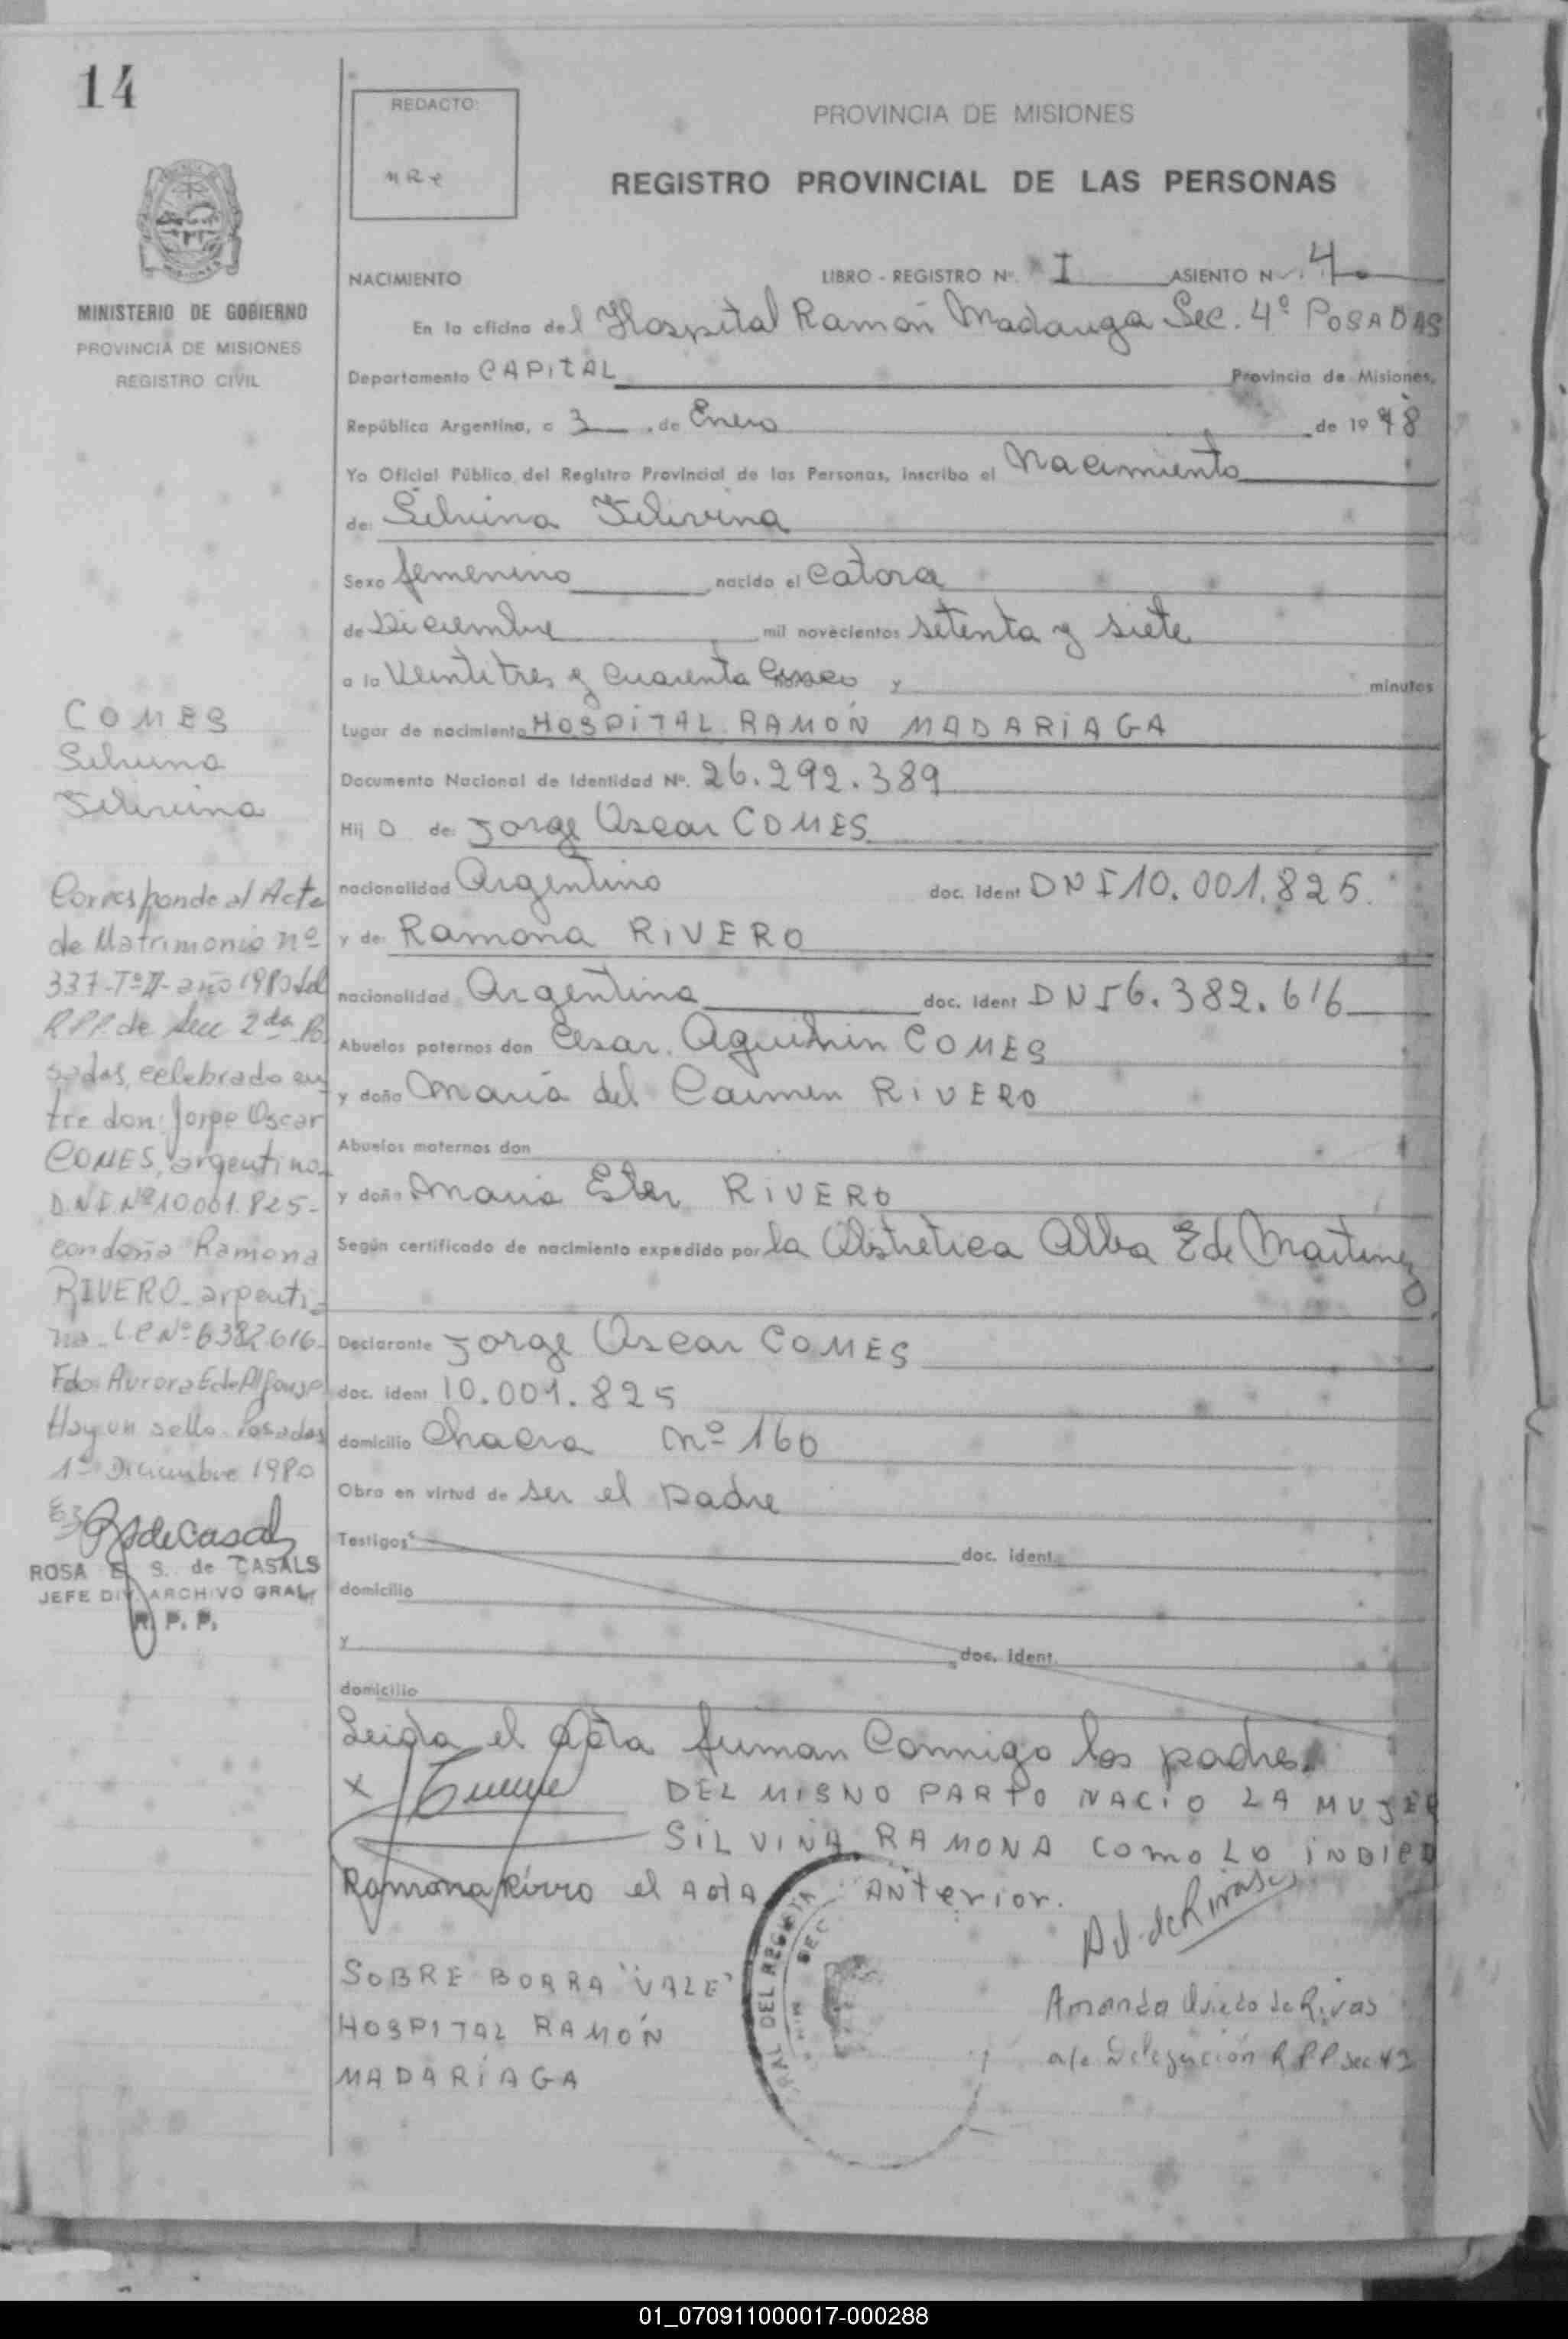 14
REDACTO:
PROVINCIA DE MISIONES
REGISTRO PROVINCIAL DE LAS PERSONAS
MINISTERIO DE GOBIERNO
PROVINCIA DE MISIONES
REGISTRO CIVIL
NACIMIENTO LIBRO - REGISTRO Nº. I ASIENTO N 4
En la oficina del Hospital Ramón Madariaga Sec. 4º POSADAS
Departamento CAPITAL Provincia de Misiones,
República Argentina, a 3 de Enero de 1978
Yo Oficial Público del Registro Provincial de las Personas, inscribo el Nacimiento
de: Silvina
Sexo femenino nacido el catorce
de Diciembre mil novecientos setenta y siete
a la Veintitres y cuarenta cinco y minutos
Lugar de nacimiento HOSPITAL RAMÓN MADARIAGA
Documento Nacional de Identidad Nº. 26.292.389
Hij a de: Jorge Oscar COMES
nacionalidad Argentino doc. ident DNI 10.001.825.
y de: Ramona RIVERO
nacionalidad Argentina doc. ident DNI 6.382.616
Abuelos paternos don Cesar COMES
y doña María del Carmen RIVERO
Abuelos maternos don
y doña Maria Ester RIVERO
Según certificado de nacimiento expedido por la Obstetrica Alba E de Martinez
Declarante Jorge Oscar COMES
doc. ident 10.001.825
domicilio Chacra Nº 160
Obra en virtud de ser el padre
Testigos doc. ident.
domicilio
y doc. ident.
domicilio
Leida el acta firman conmigo los padres.
DEL MISNO PARTO NACIO LA MUJER
SILVINA RAMONA como LO INDICA
Ramona Rivero el ACTA ANTERIOR.
SOBRE BORRA "VALE"
HOSPITAL RAMÓN
MADARIAGA
Amanda Oviedo de Rivas
a/c Delegación RPP Sec 4ª
COMES
Silvina
Corresponde al Acta
de Matrimonio nº
337-Tº II- año 1980 del
RPP. de Sec 2da Po
sadas, celebrado en
tre don: Jorge Oscar
COMES, argentino-
D.N.I. Nº 10.001.825-
con doña Ramona
RIVERO- argenti
na- LC Nº 6382.616-
Fdo: Aurora E de Alfonso
Hay un sello. Posadas
1º Diciembre 1980
ROSA E. S. de CASALS
JEFE DIV. ARCHIVO GRAL.
R. P. P.
01_070911000017-000288